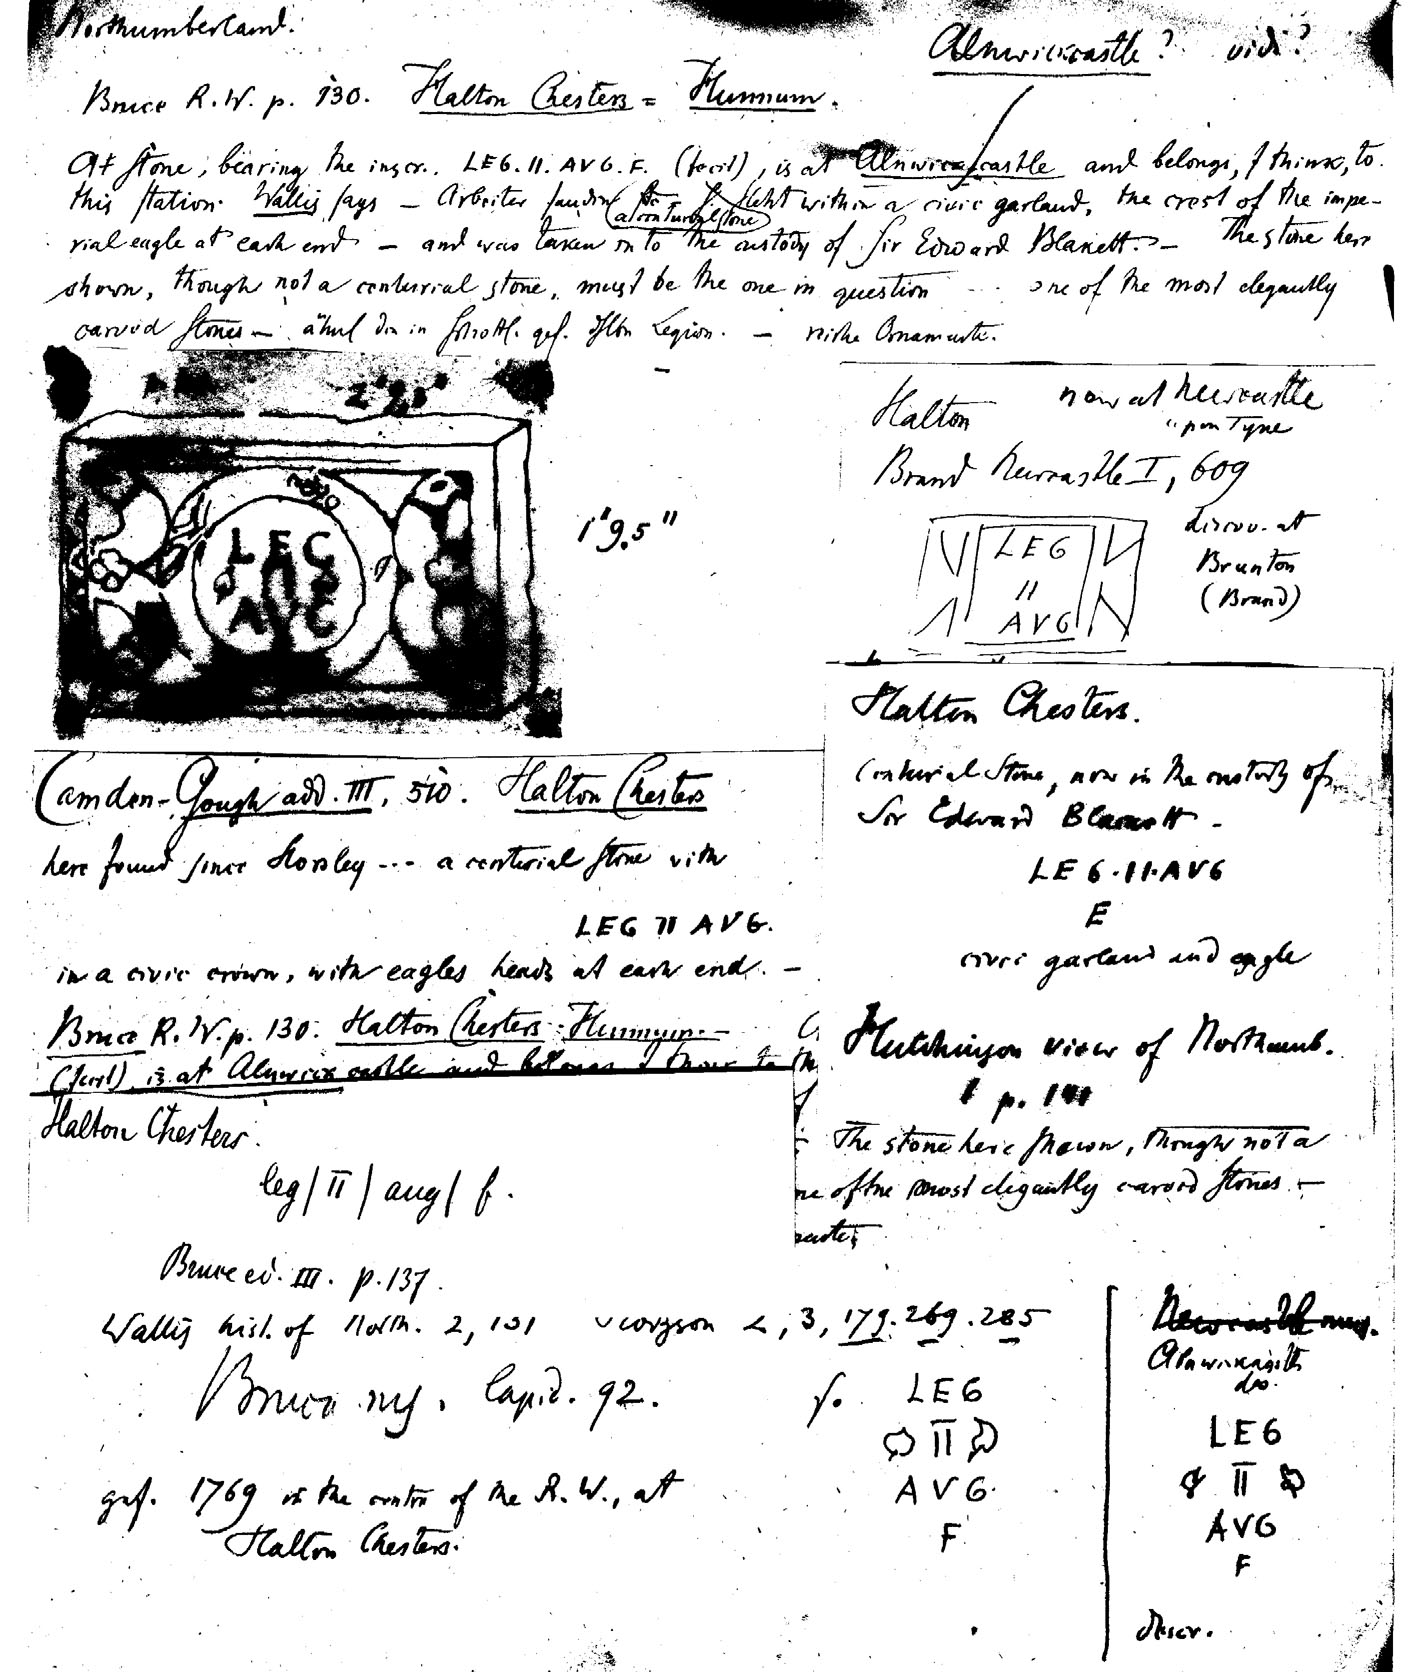 Northumberland.
Alnwickcastle? vidi?
Bruce R.W. p. 130. Halton Chesters = Hunnum.
A stone, bearing the inscr. LEG. II. AVG. F. (fecit), is at Alnwickcastle and belongs, I think, to
this station. Wallis says — Arbeiter fanden
(a centurial stone)
within a civic garland, the crest of the impe-
rial eagle at each end — and was taken into the custody of Sir Edward Blakett. — The stone here
shown, though not a centurial stone, must be the one in question --- one of the most elegantly
carved stones — in Legion. —
LEG
II
AVG
1'9.5"
Halton now at Newcastle
upon Tyne
Brand Newcastle I, 609
LEG
II
AVG
discov. at
Brunton
(Brand)
Camden-Gough add. III, 510. Halton Chesters
here found since Horsley --- a centurial stone with
LEG II AVG.
in a civic crown, with eagles heads at each end. —
Bruce R.W. p. 130. Halton Chesters = Hunnum. —
(fecit), is at Alnwick castle and belongs I think to
Halton Chesters.
Centurial Stone, now in the custody of
Sir Edward Blackett -
LEG.II.AVG
E
civic garland and eagle
Hutchinson view of Northumb.
p.
The stone here shown, though not a
ne of the most elegantly carved stones —
Halton Chesters.
leg | II | aug | f.
Bruce ed. III. p. 137.
Wallis hist. of North. 2, Hodgson 2, 3, 179. 269. 285
Bruce lapid. 92.
gef. 1769 in the centre of the R. W., at
Halton Chesters.
LEG
II
AVG.
F
Newcastle mus.
Alnwickcastle
do.
LEG
II
AVG
F
descr.